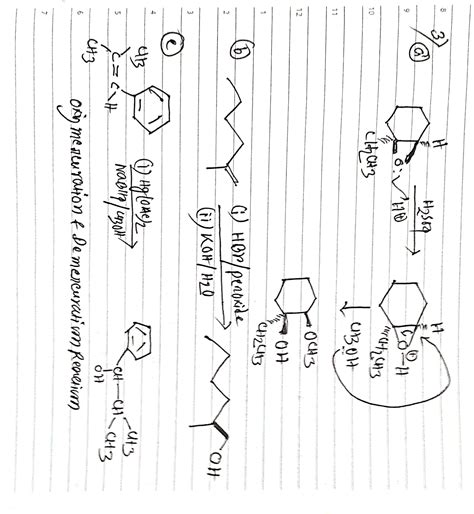 3) a)
H
O:
H⊕
CH2CH3
H2SO4
H
⊕
O—H
CH2CH3
CH3OH
OCH3
OH
CH2CH3
b)
(i) HBr/peroxide
(ii) KOH/H2O
OH
c)
CH3
C=C
H
CH3
(i) Hg(OAc)2
CH—CH
OH
CH3
CH3
oxymercuration & Demercuration
8
9
10
11
12
1
2
3
4
5
6
7